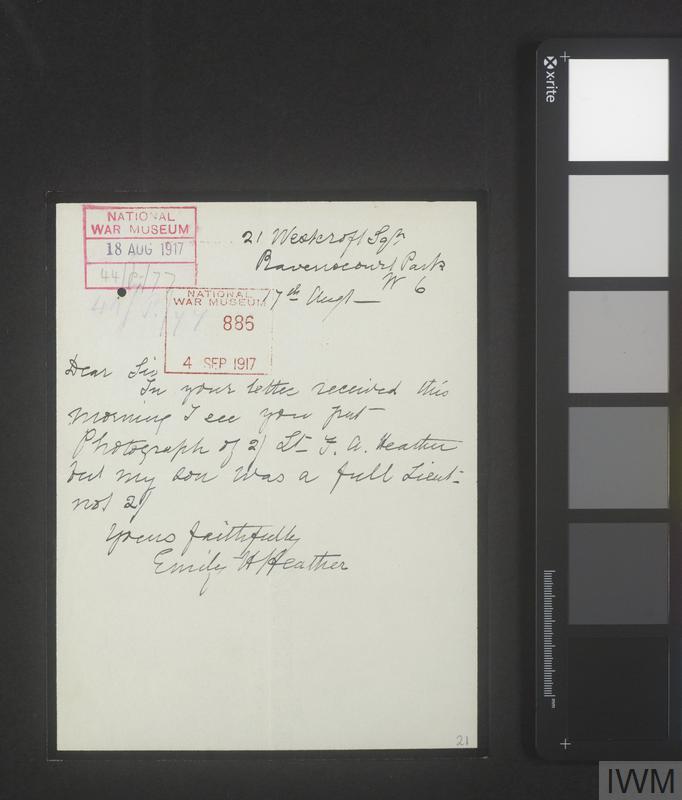 NATIONAL
WAR MUSEUM
18 AUG 1917
21 Westcroft Sqr
Ravenscourt Park
W 6
17th Augt
NATIONAL
WAR MUSEUM
886
4 SEP 1917
Dear Sir
In your letter received this
morning I see you put
Photograph of 2/ Lt F. A. Heather
but my son was a full Lieut-
not 2/
Yours faithfully
Emily H Heather
21
x-rite
mm
IWM